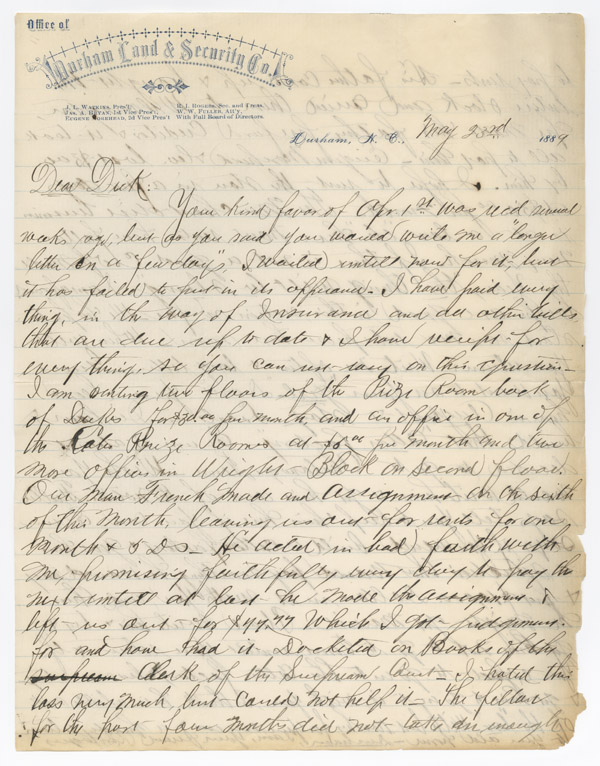 Office of
Durham Land & Security Co.
J. L. Watkins, Pres't.
Jas. A. Bryan, 1st Vice Pres't,
Eugene Morehead, 2d Vice Pres't
R. J. Rogers, Sec. and Treas.
W. W. Fuller, Att'y,
With Full Board of Directors.
Durham, N. C., May 23rd 1889
Dear Dick:
Your kind favor of Apr 1st was rec'd several
weeks ago, but as you said you would write me a "longer
letter in a "few days", I waited untill now for it, but
it has failed to put in its apperance. I have paid every
thing, in the way of Insurance and all other bills
that are due up to date & I have receipts for
everything, so you can rest easy on this question-
I am renting two floors of the Prize Room back
of Dukes for per month, and an office in one of
the Prize Rooms at per month and two
more offices in Wright Block on second floor.
Our man French made and Assignment on the sixth
of this month, leaving us out for rents for one
month & 5 Ds - He acted in bad faith with
me, promising faithfully every day to pay the
next untill at last he made the assignment &
left us out for $47.77 Which I got judgement
for and have had it Docketed on Books of the
Clerk of the Supream Court - I hated this
loss very much, but could not help it - The fellow
for the past four months did not take in enough